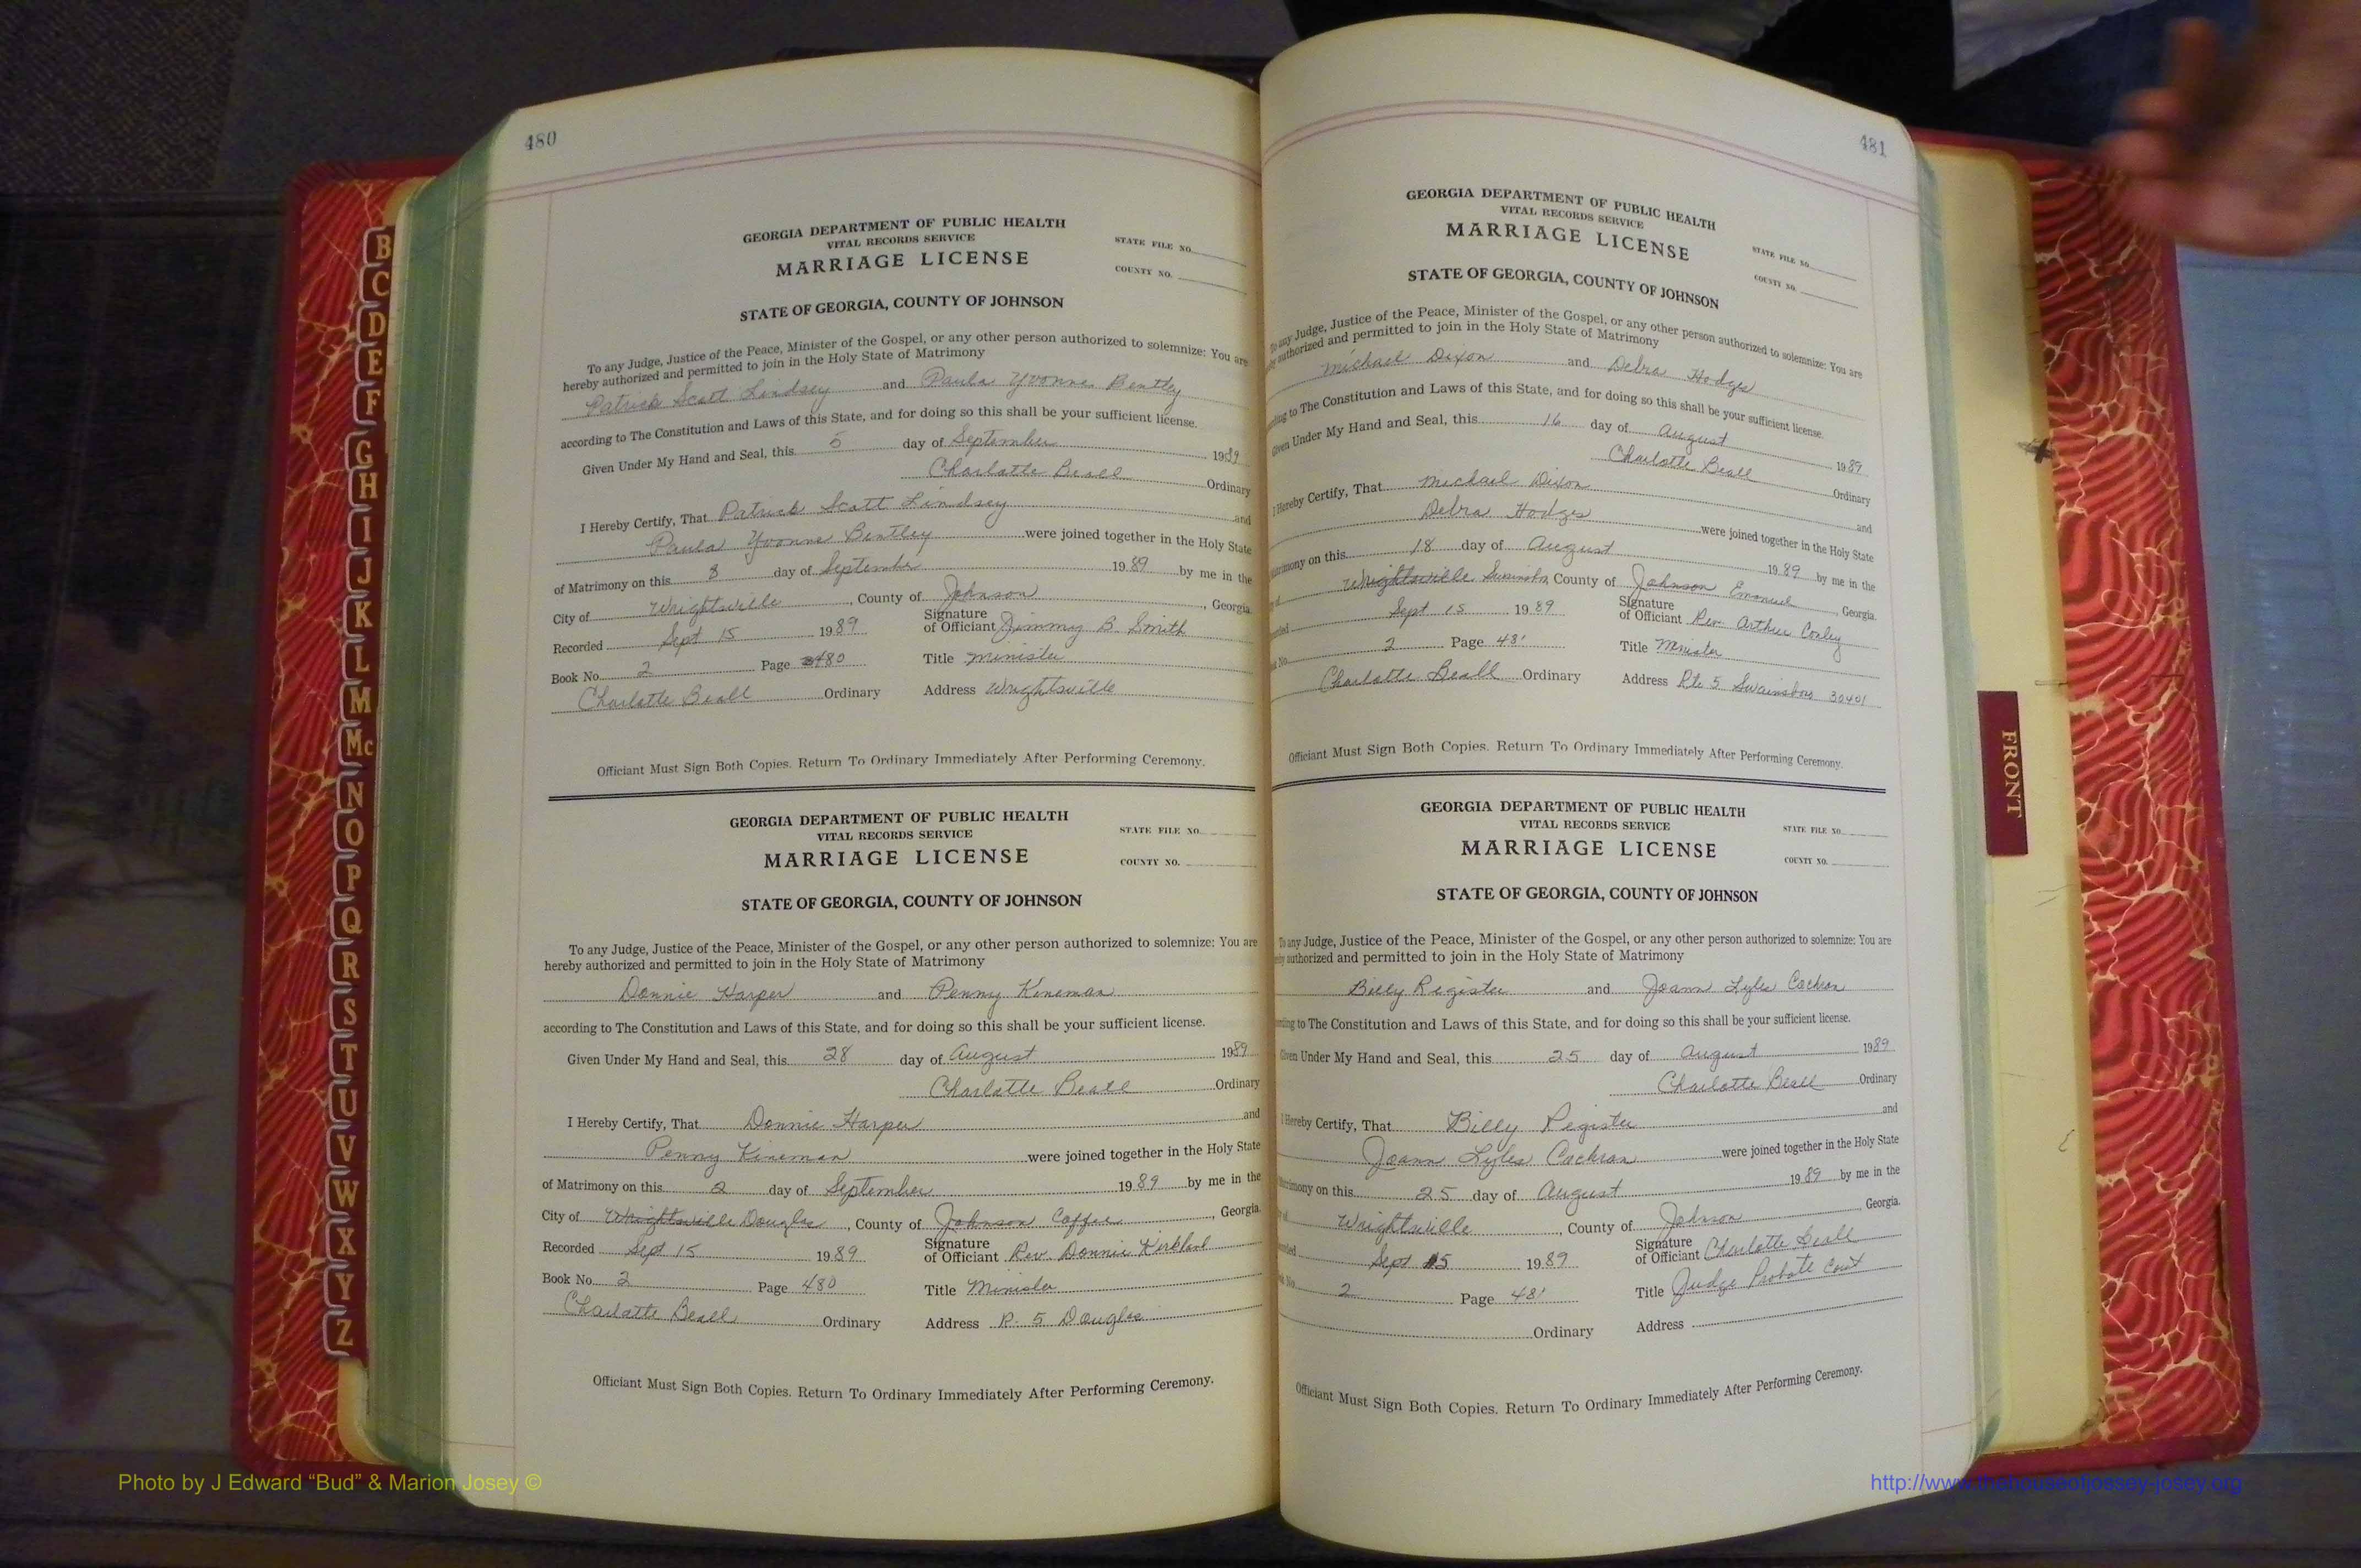 480
GEORGIA DEPARTMENT OF PUBLIC HEALTH
VITAL RECORDS SERVICE
MARRIAGE LICENSE
STATE FILE NO.
COUNTY NO.
STATE OF GEORGIA, COUNTY OF JOHNSON
To any Judge, Justice of the Peace, Minister of the Gospel, or any other person authorized to solemnize: You are
hereby authorized and permitted to join in the Holy State of Matrimony
Patrick Scott Lindsey and Paula Yvonne Bentley
according to The Constitution and Laws of this State, and for doing so this shall be your sufficient license.
Given Under My Hand and Seal, this 5 day of September 1989
Charlotte Beall Ordinary
I Hereby Certify, That Patrick Scott Lindsey and
Paula Yvonne Bentley were joined together in the Holy State
of Matrimony on this 8 day of September 1989 by me in the
City of Wrightsville, County of Johnson, Georgia
Recorded Sept 15 1989 Signature of Officiant Jimmy B. Smith
Book No. 2 Page 480 Title Minister
Charlotte Beall Ordinary Address Wrightsville
Officiant Must Sign Both Copies. Return To Ordinary Immediately After Performing Ceremony.
GEORGIA DEPARTMENT OF PUBLIC HEALTH
VITAL RECORDS SERVICE
MARRIAGE LICENSE
STATE FILE NO.
COUNTY NO.
STATE OF GEORGIA, COUNTY OF JOHNSON
To any Judge, Justice of the Peace, Minister of the Gospel, or any other person authorized to solemnize: You are
hereby authorized and permitted to join in the Holy State of Matrimony
Donnie Harper and Penny Kineman
according to The Constitution and Laws of this State, and for doing so this shall be your sufficient license.
Given Under My Hand and Seal, this 28 day of August 1989
Charlotte Beall Ordinary
I Hereby Certify, That Donnie Harper and
Penny Kineman were joined together in the Holy State
of Matrimony on this 2 day of September 1989 by me in the
City of Wrightsville Douglas, County of Johnson Coffee, Georgia
Recorded Sept 15 1989 Signature of Officiant Rev. Donnie Kirkland
Book No. 2 Page 480 Title Minister
Charlotte Beall Ordinary Address R. 5 Douglas
Officiant Must Sign Both Copies. Return To Ordinary Immediately After Performing Ceremony.
481
GEORGIA DEPARTMENT OF PUBLIC HEALTH
VITAL RECORDS SERVICE
MARRIAGE LICENSE
STATE FILE NO.
COUNTY NO.
STATE OF GEORGIA, COUNTY OF JOHNSON
To any Judge, Justice of the Peace, Minister of the Gospel, or any other person authorized to solemnize: You are
authorized and permitted to join in the Holy State of Matrimony
Michael Dixon and Debra Hodges
to The Constitution and Laws of this State, and for doing so this shall be your sufficient license.
Given Under My Hand and Seal, this 16 day of August 1989
Charlotte Beall Ordinary
I Hereby Certify, That Michael Dixon and
Debra Hodges were joined together in the Holy State
on this 18 day of August 1989 by me in the
Wrightsville Swainsboro, County of Johnson Emanuel, Georgia
Sept 15 1989 Signature of Officiant Rev. Arthur Conley
2 Page 481 Title Minister
Charlotte Beall Ordinary Address Rte 5 Swainsboro 30401
Officiant Must Sign Both Copies. Return To Ordinary Immediately After Performing Ceremony.
GEORGIA DEPARTMENT OF PUBLIC HEALTH
VITAL RECORDS SERVICE
MARRIAGE LICENSE
STATE FILE NO.
COUNTY NO.
STATE OF GEORGIA, COUNTY OF JOHNSON
To any Judge, Justice of the Peace, Minister of the Gospel, or any other person authorized to solemnize: You are
authorized and permitted to join in the Holy State of Matrimony
Billy Register and Joann Lyles Cochran
to The Constitution and Laws of this State, and for doing so this shall be your sufficient license.
Given Under My Hand and Seal, this 25 day of August 1989
Charlotte Beall Ordinary
I Hereby Certify, That Billy Register and
Joann Lyles Cochran were joined together in the Holy State
on this 25 day of August 1989 by me in the
Wrightsville, County of Johnson Georgia.
Sept 15 1989 Signature of Officiant Charlotte Beall
2 Page 481 Title Judge Probate Court
Ordinary Address
Officiant Must Sign Both Copies. Return To Ordinary Immediately After Performing Ceremony.
B
C
D
E
F
G
H
I
J
K
L
M
Mc
N
O
P
Q
R
S
T
U
V
W
X
Y
Z
FRONT
Photo by J Edward “Bud” & Marion Josey ©
http://www.thehouseofjossey-josey.org